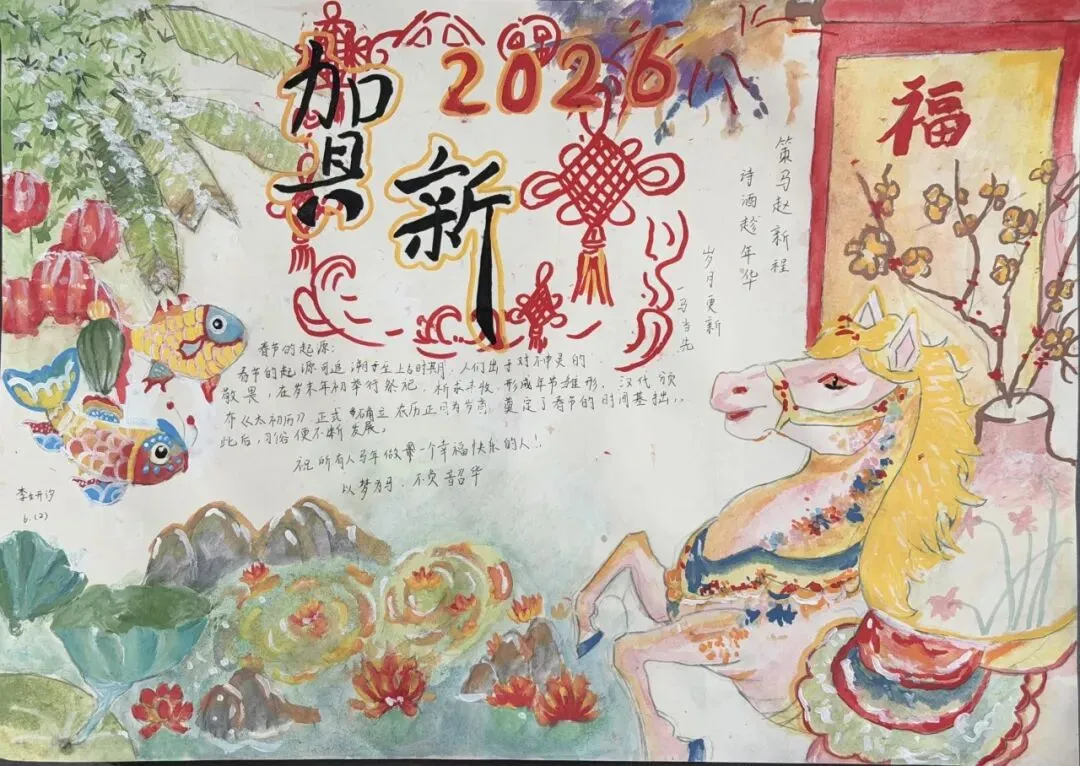 2026
贺
新
福
策马赵新程
诗酒趁年华
岁月更新
一马当先
春节的起源:
春节的起源可追溯至上古时期,人们出于对神灵的
敬畏,在岁末年初举行祭祀,祈求丰收,形成年节雏形。汉代颁
布《太初历》正式确立农历正月为岁首,奠定了春节的时间基础,
此后,习俗便不断发展。
祝所有人马年做一个幸福快乐的人!
以梦为马,不负韶华
6.(2)